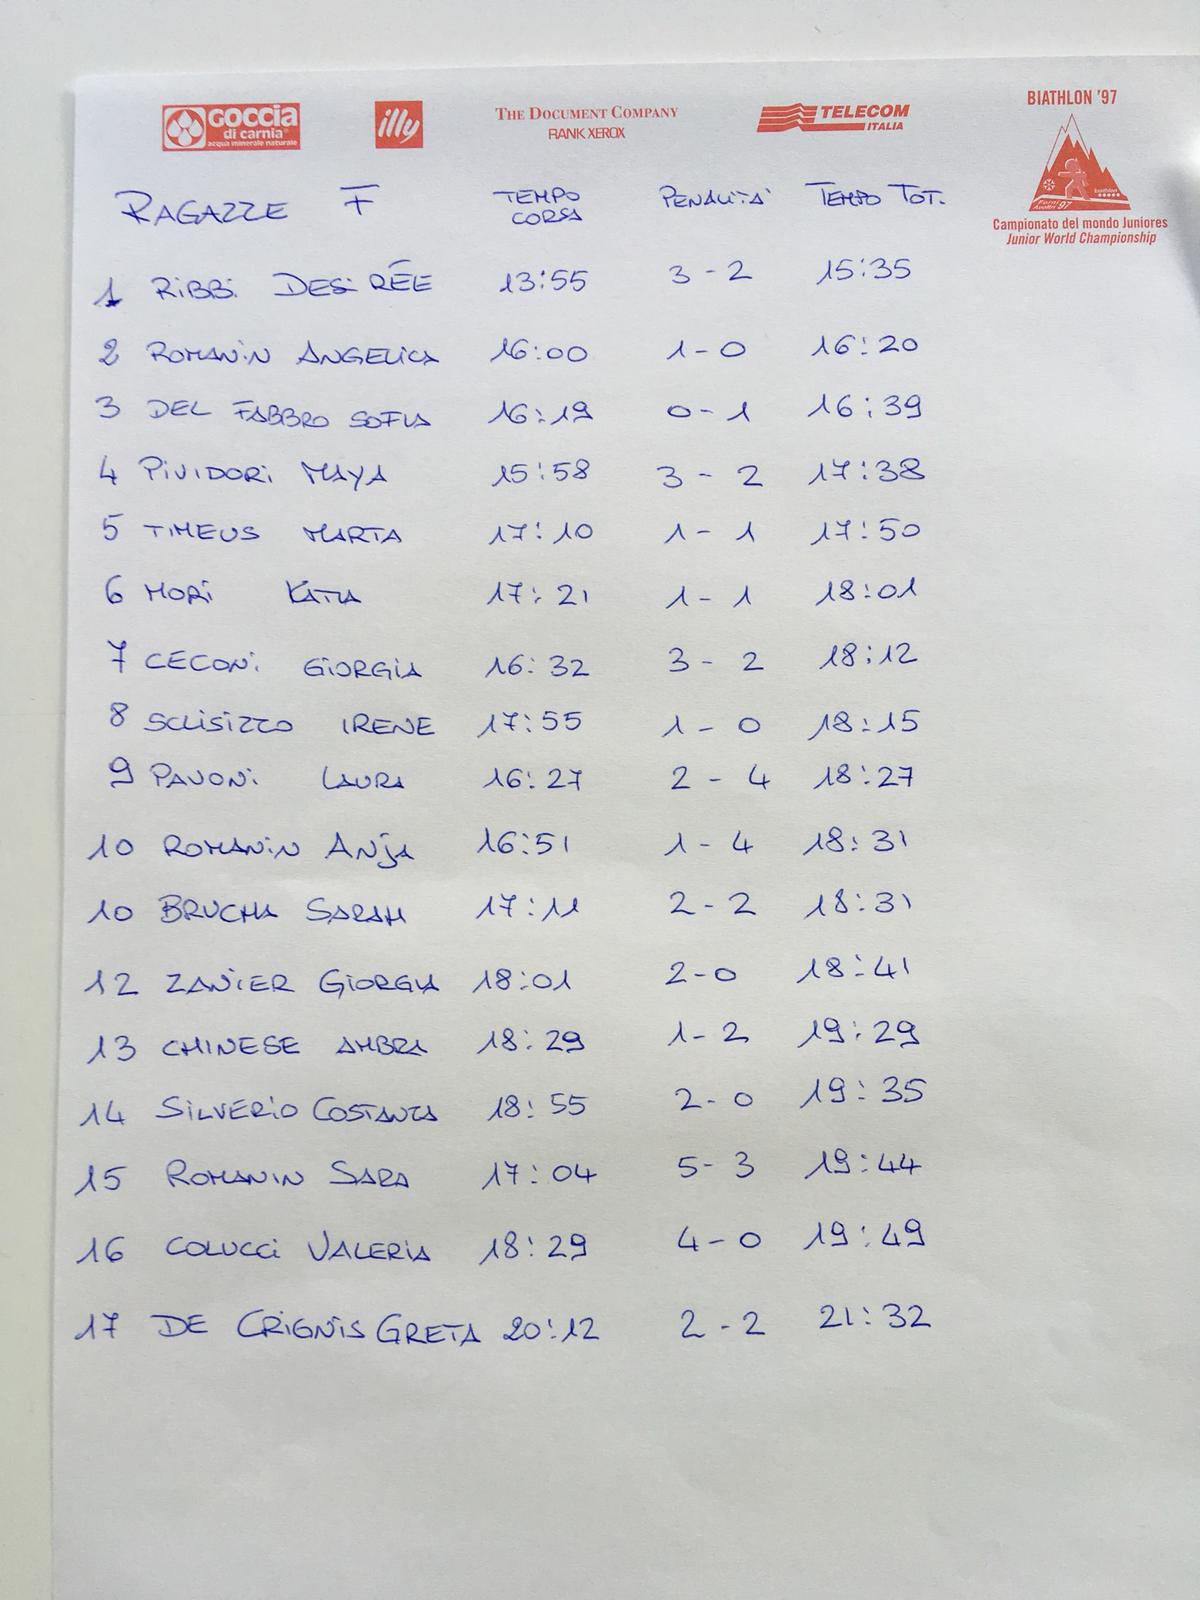 GOCCIA di carnia acqua minerale naturale illy THE DOCUMENT COMPANY RANK XEROX TELECOM ITALIA BIATHLON '97
Campionato del mondo Juniores
Junior World Championship
RAGAZZE F TEMPO CORSA PENALITA' TEMPO TOT.
1 RIBBI DESIRÉE 13:55 3-2 15:35
2 ROMANIN ANGELICA 16:00 1-0 16:20
3 DEL FABBRO SOFIA 16:19 0-1 16:39
4 PIVIDORI MAYA 15:58 3-2 17:38
5 TIMEUS MARTA 17:10 1-1 17:50
6 MORI KATIA 17:21 1-1 18:01
7 CECONI GIORGIA 16:32 3-2 18:12
8 SCLISIZZO IRENE 17:55 1-0 18:15
9 PAVONI LAURA 16:27 2-4 18:27
10 ROMANIN ANJA 16:51 1-4 18:31
10 BRUCHA SARAH 17:11 2-2 18:31
12 ZANIER GIORGIA 18:01 2-0 18:41
13 CHINESE AMBRA 18:29 1-2 19:29
14 SILVERIO COSTANZA 18:55 2-0 19:35
15 ROMANIN SARA 17:04 5-3 19:44
16 COLUCCI VALERIA 18:29 4-0 19:49
17 DE CRIGNIS GRETA 20:12 2-2 21:32